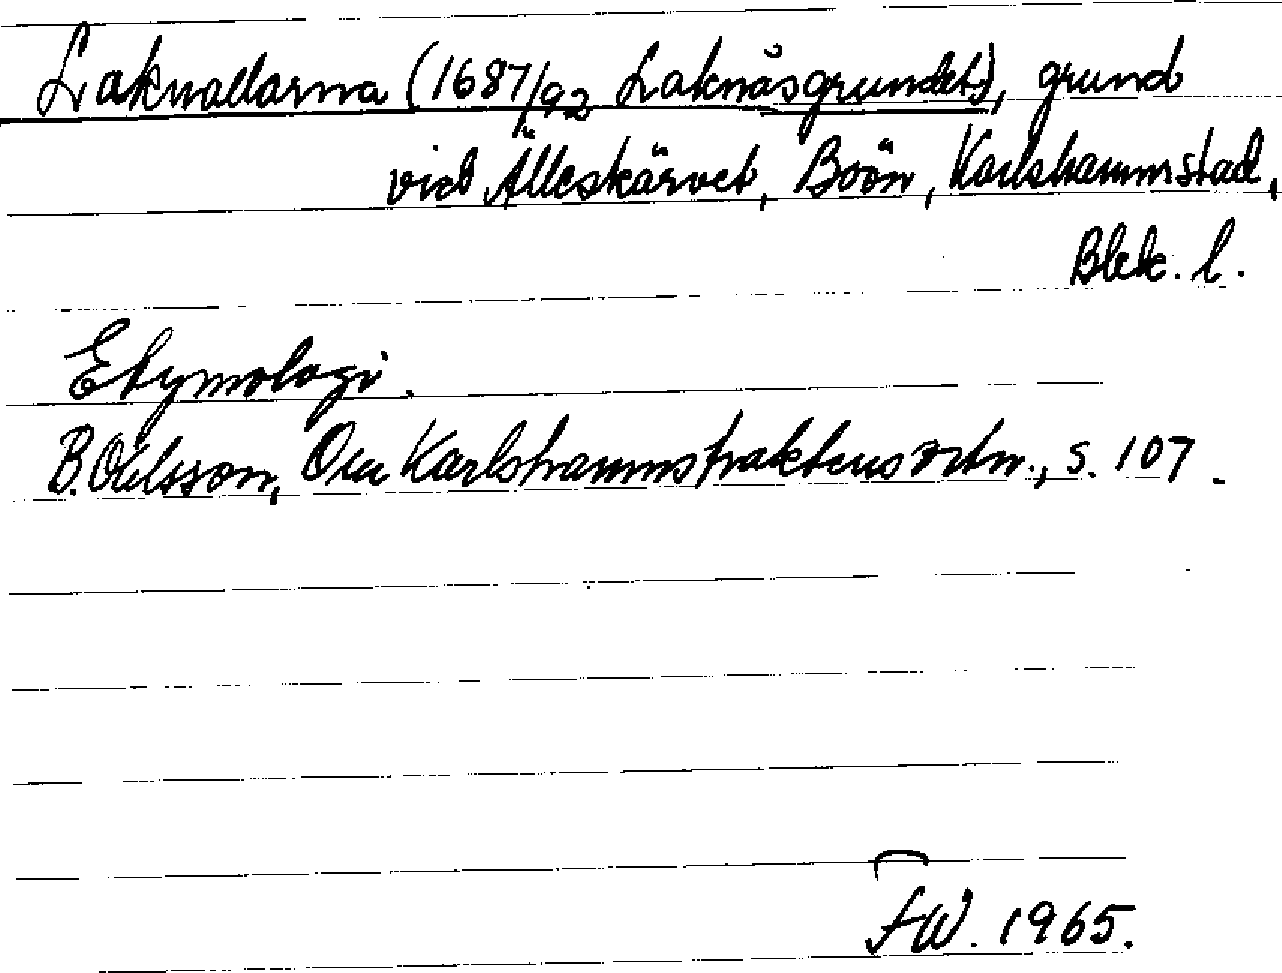 Laknallarna (1687/92 Laknäsgrundet), grund
vid Älleskärvet, Boön, Karlshamnstad,
Blek. l.
Etymologi.
B. Ohlsson, Om Karlshamnstraktens ortn., s. 107.
FW. 1965.